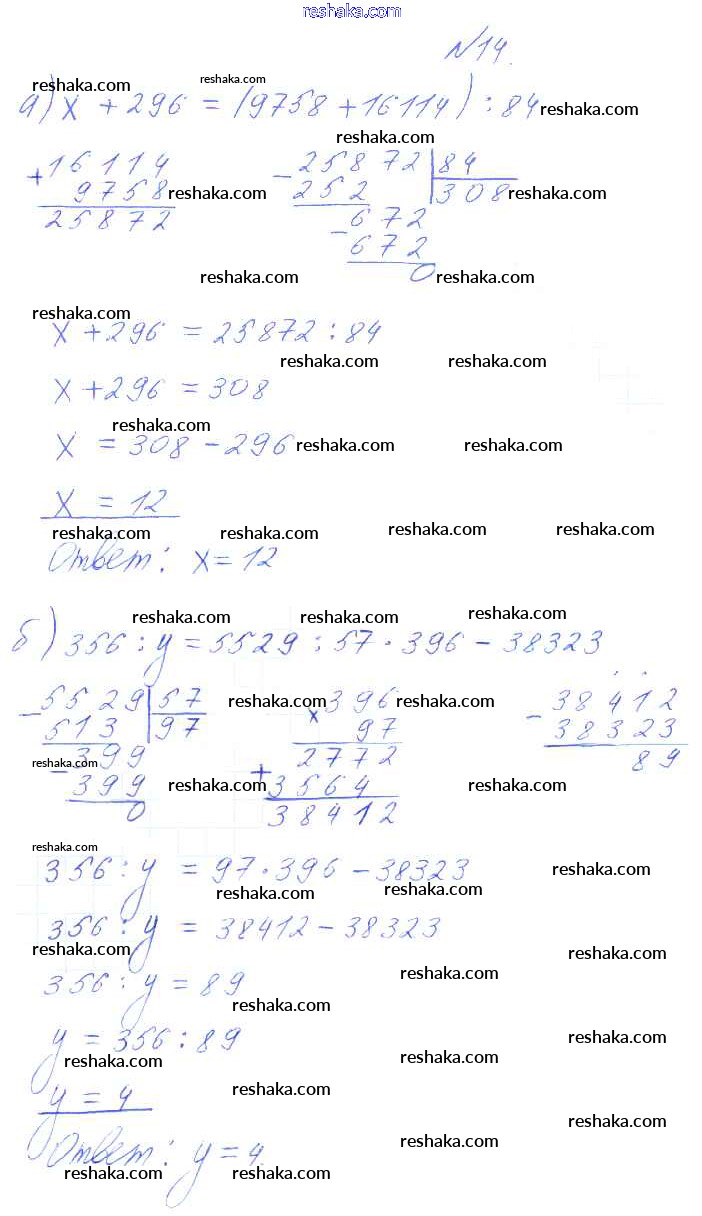 reshaka.com
№14.
reshaka.com reshaka.com
а) x + 296 = (9758 + 16114) : 84 reshaka.com
reshaka.com
+ 16114 - 25872 | 84
9758 reshaka.com 252 308 reshaka.com
25872 - 672
672
reshaka.com 0 reshaka.com
reshaka.com
x + 296 = 25872 : 84
reshaka.com reshaka.com
x + 296 = 308
reshaka.com
x = 308 - 296 reshaka.com reshaka.com
x = 12
reshaka.com reshaka.com reshaka.com reshaka.com
Ответ: x = 12
reshaka.com reshaka.com reshaka.com
б) 356 : y = 5529 : 57 · 396 - 38323
- 5529 | 57 reshaka.com x 396 reshaka.com - 38412
513 97 97 38323
- 399 2772 89
reshaka.com
399 reshaka.com + 3564 reshaka.com
0 38412
reshaka.com
356 : y = 97 · 396 - 38323 reshaka.com
reshaka.com reshaka.com
356 : y = 38412 - 38323
reshaka.com reshaka.com
356 : y = 89 reshaka.com
reshaka.com
y = 356 : 89 reshaka.com
reshaka.com reshaka.com
y = 4 reshaka.com
reshaka.com
Ответ: y = 4. reshaka.com
reshaka.com reshaka.com